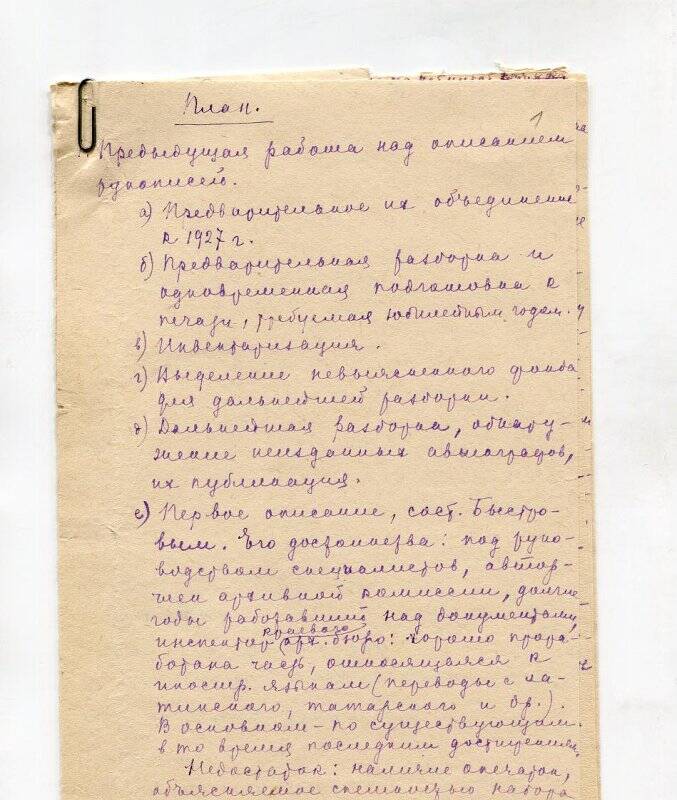 План.
1
Предыдущая работа над описанием
рукописей.
а) Предварительное их объединение
к 1927 г.
б) Предварительная разборка и
одновременная подготовка к
печати, требуемая юбилейным годом.
в) Инвентаризация.
г) Выделение невыясненного фонда
для дальнейшей разборки.
д) Дальнейшая разборка, обнару-
жение неизданных автографов,
их публикация.
е) Первое описание, сост. Быстро-
вым. Его достоинства: под руко-
водством специалистов, автор-
член архивной комиссии, долгие
годы работавший над документами,
краевого
инспектор арх. бюро: хорошо прора-
ботана часть, относящаяся к
иностр. языкам (переводы с ла-
тинского, татарского и др.).
В основном - по существующим
в то время последним достижениям.
Недостаток: наличие опечаток,
объясняемое спешностью набора